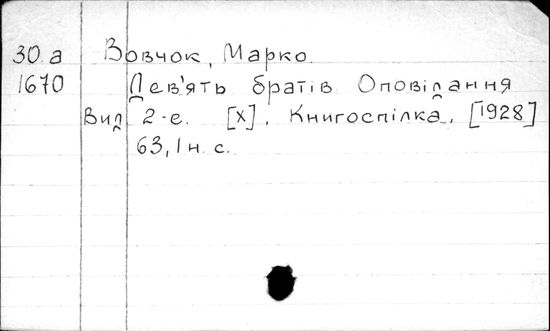 30.а Вовчок, Марко.
1670 Дев'ять братів. Оповідання
Вид 2-е. [Х]. Книгоспілка, [1928]
63, 1 н. с.